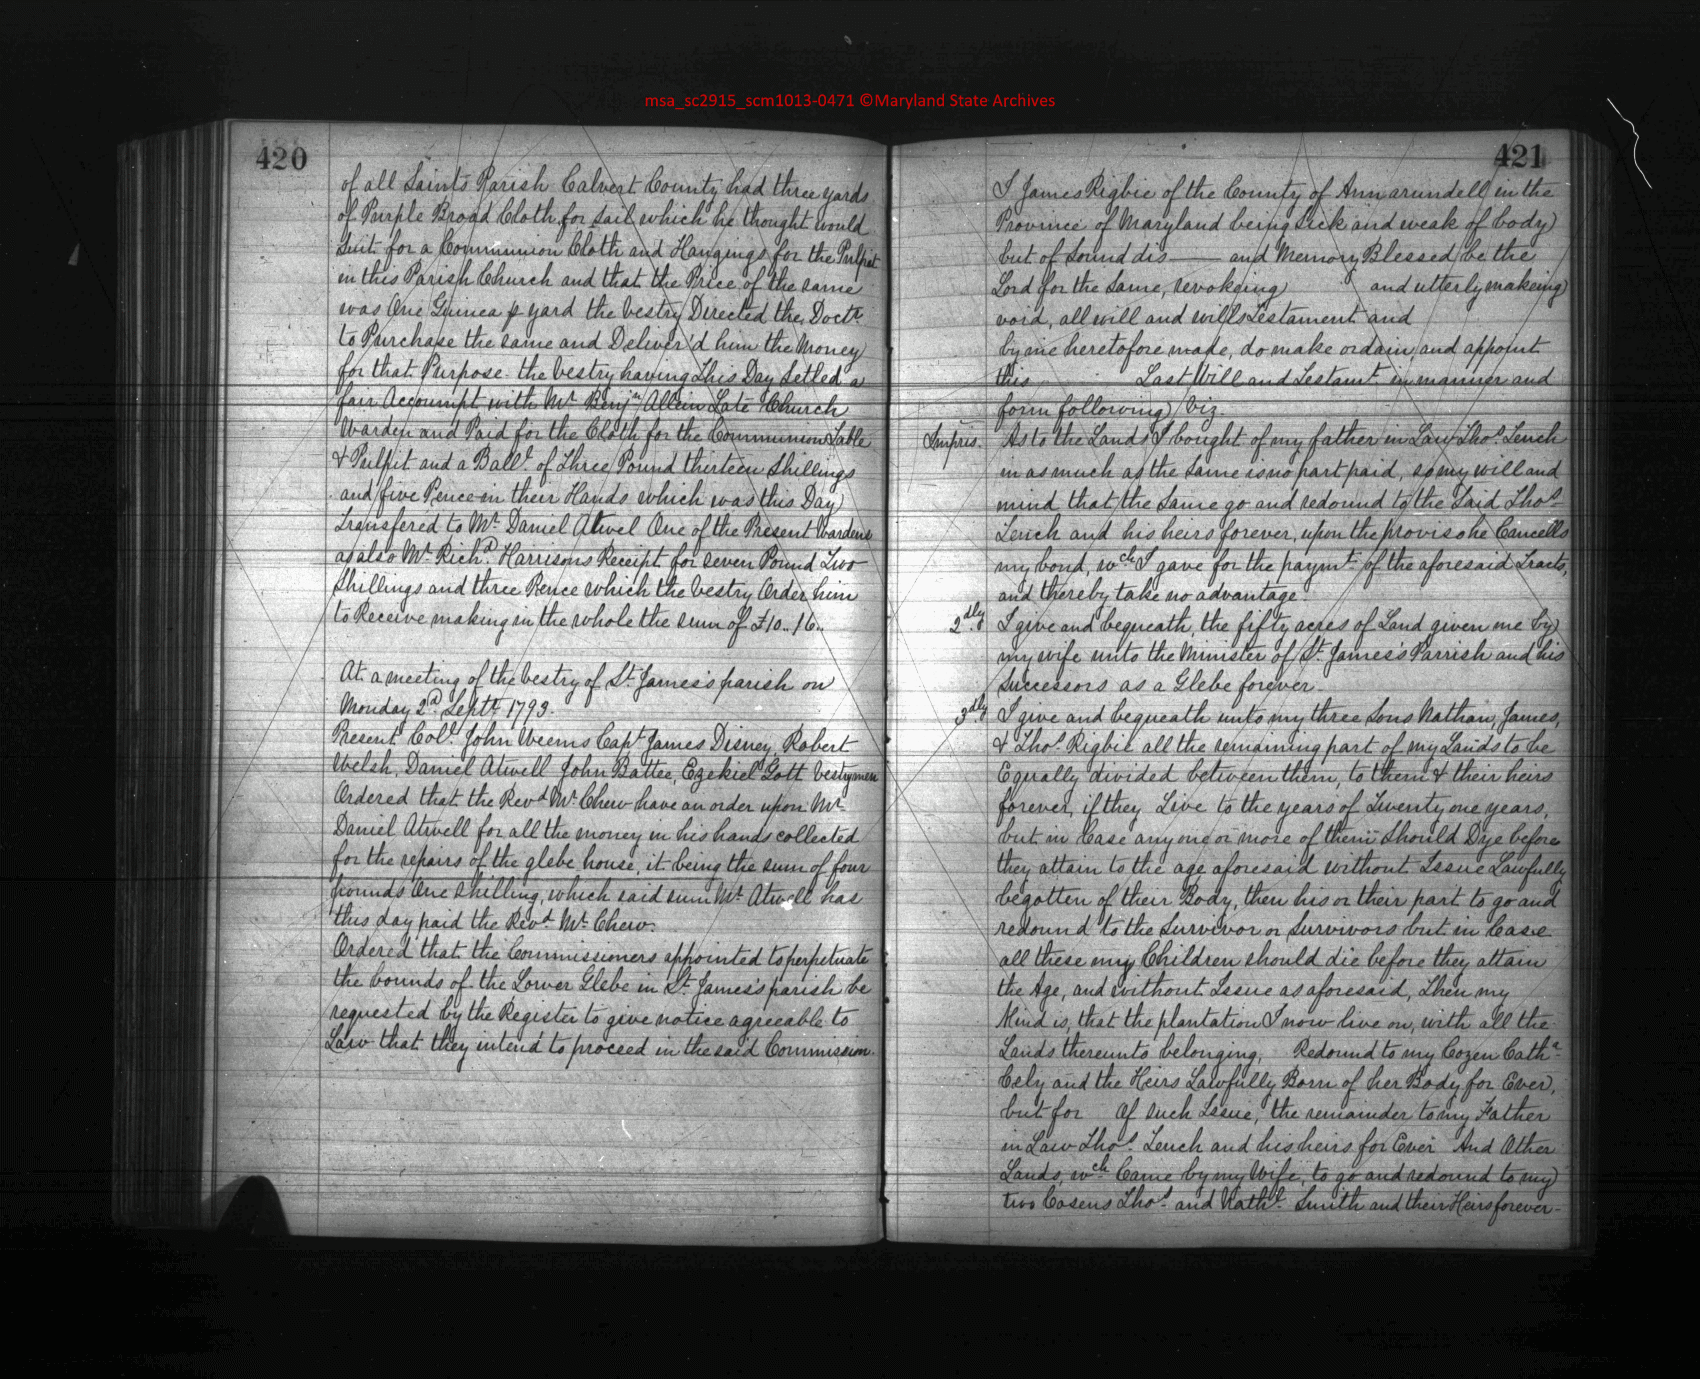 msa_sc2915_scm1013-0471 ©Maryland State Archives
420
of all Saints Parish Calvert County had three yards
of Purple Broad Cloth for sail which he thought would
Suit for a Communion Cloth and Hangings for the Pulpit
in this Parish Church and that the Price of the same
was One Guinea p yard the Vestry Directed the Doctr.
to Purchase the same and Deliver'd him the Money
for that Purpose the Vestry having This Day Setled a
fair Accoumpt with Mr. Benjn. Allein Late Church
Warden and Paid for the Cloth for the Communion Table
& Pulpit and a Ballc. of Three Pound thirteen Shillings
and five Pence in their Hands which was this Day
Transfered to Mr. Daniel Atwel One of the Present Wardens
as also Mr. Richd. Harrisons Receipt for seven Pound Two
Shillings and three Pence which the Vestry Order him
to Receive making in the whole the sum of £10..16..
At a meeting of the Vestry of St. James's parish on
Monday 2d. Septr. 1793.
Present Coll. John Weems Capt. James Disney Robert
Welsh, Daniel Atwell John Battee, Ezekiel Gott Vestrymen
Ordered that the Revd. Mr. Chew have an order upon Mr.
Daniel Atwell for all the money in his hands collected
for the repairs of the glebe house, it being the sum of four
pounds One shilling, which said sum Mr. Atwell has
this day paid the Revd. Mr. Chew.
Ordered that the Commissioners appointed to perpetuate
the bounds of the Lower Glebe in St. James's parish be
requested by the Register to give notice agreeable to
Law that they intend to proceed in the said Commission.
421
I James Rigbie of the County of Annarundell in the
Province of Maryland being Sick and weak of body
but of Sound dis—— and Memory Blessed be the
Lord for the Same, revokeing and utterly makeing
void, all will and wills Testament and
by me heretofore made, do make ordain and appoint
this Last Will and Testamt. in manner and
form following Viz.
Impris. As to the Lands I bought of my father in Law Thos. Tench
in as much as the Same is no part paid, so my will and
mind that the Same go and redound to the Said Thos.
Tench and his heirs forever, upon the proviso he Cancells
my bond, wch. I gave for the paymt. of the aforesaid Tracts,
and thereby take no advantage.
2dly. I give and bequeath, the fifty acres of Land given me by
my wife unto the Minister of St. James's Parrish and his
Successors as a Glebe forever.
3dly. I give and bequeath unto my three Sons Nathan, James,
& Thos. Rigbie all the remaining part of my Lands to be
Equally divided between them, to them & their heirs
forever, if they Live to the years of Twenty one years,
but in Case any one or more of them Should Dye before
they attain to the age aforesaid without Issue Lawfully
begotten of their Body, then his or their part to go and
redound to the Survivor or Survivors but in Case
all these my Children should die before they attain
the Age, and without Issue as aforesaid, Then my
Mind is, that the plantation I now live on, with all the
Lands thereunto belonging, Redound to my Cozen Catha.
Cely and the Heirs Lawfully Born of her Body for Ever,
but for Of such Issue, the remainder to my Father
in Law Thos. Tench and his heirs for Ever And Other
Lands, wch. Came by my Wife, to go and redound to my
two Cosens Thos. and Nathl. Smith and their Heirs forever-